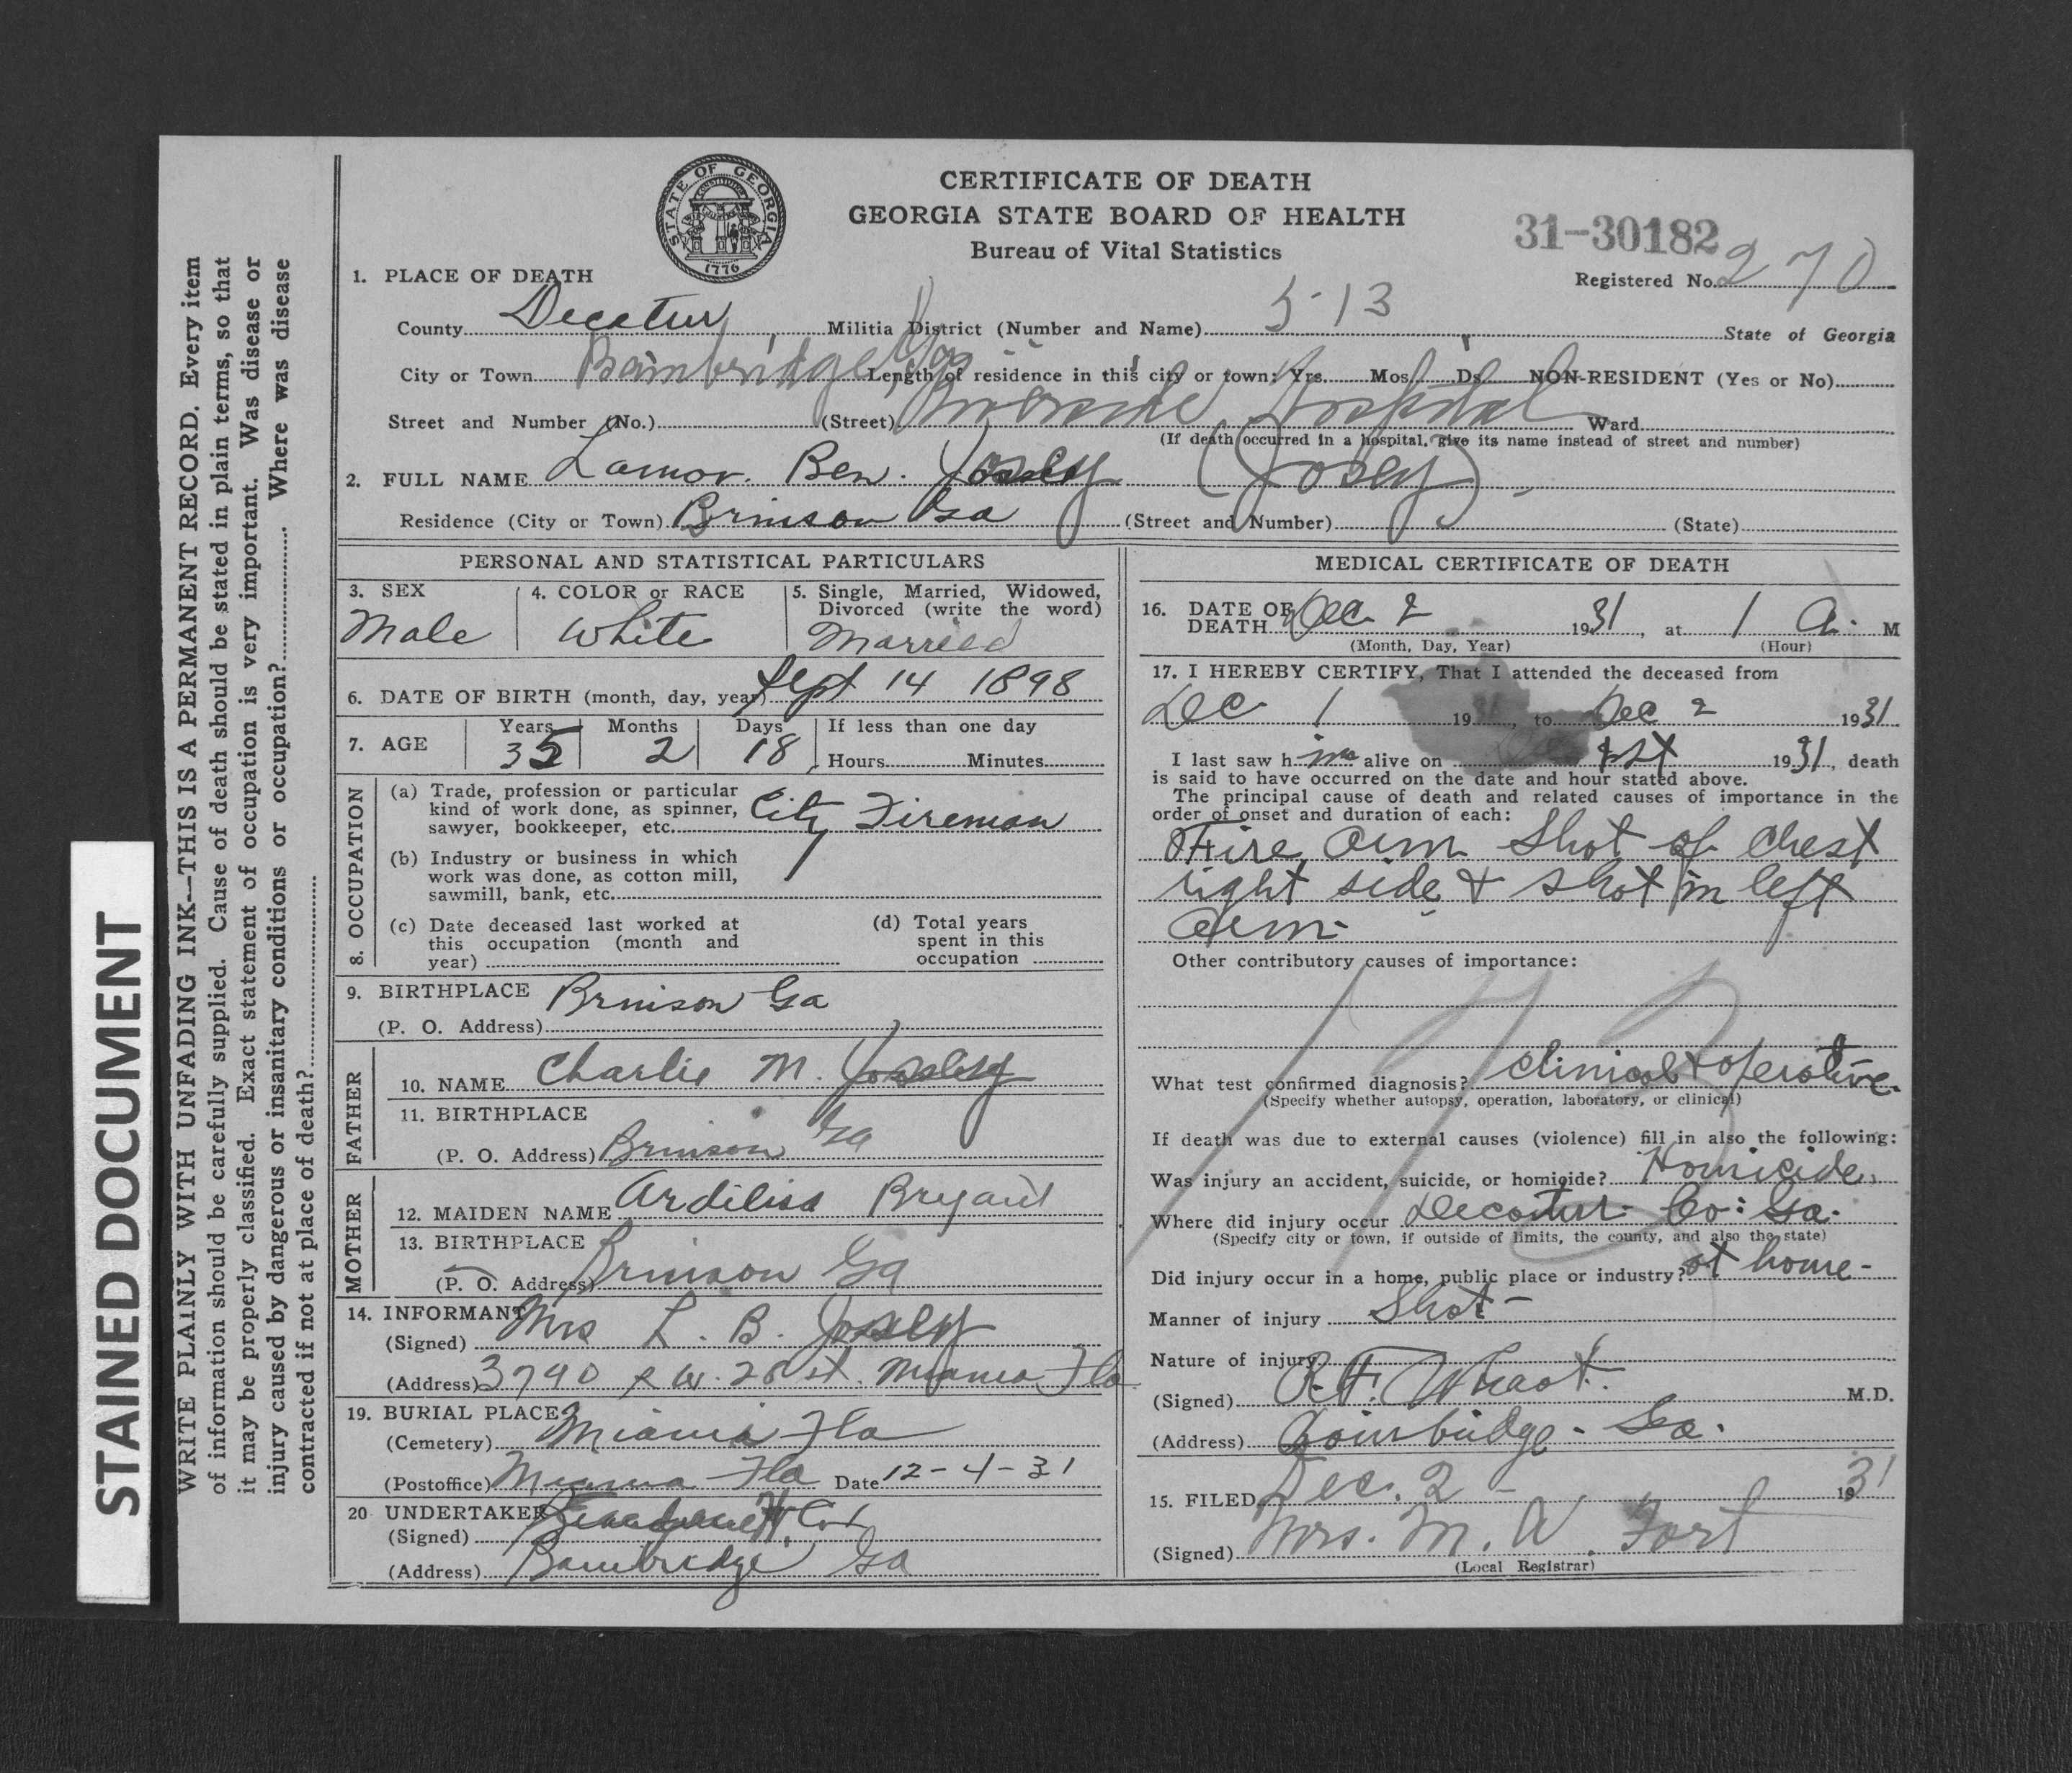 STAINED DOCUMENT
WRITE PLAINLY WITH UNFADING INK--THIS IS A PERMANENT RECORD. Every item
of information should be carefully supplied. Cause of death should be stated in plain terms, so that
it may be properly classified. Exact statement of occupation is very important. Was disease or
injury caused by dangerous or insanitary conditions or occupation?.......... Where was disease
contracted if not at place of death?..........
STATE OF GEORGIA
CONSTITUTION
1776
CERTIFICATE OF DEATH
GEORGIA STATE BOARD OF HEALTH
Bureau of Vital Statistics
31-30182
Registered No. 270
1. PLACE OF DEATH
County Decatur Militia District (Number and Name) 513 State of Georgia
City or Town Bainbridge Ga Length of residence in this city or town: Yrs. Mos. Ds. NON-RESIDENT (Yes or No)
Street and Number (No.) (Street) Riverside Hospital Ward
(If death occurred in a hospital, give its name instead of street and number)
2. FULL NAME Lamar. Ben. Josey (Josey)
Residence (City or Town) Brinson Ga (Street and Number) (State)
PERSONAL AND STATISTICAL PARTICULARS
3. SEX Male
4. COLOR or RACE White
5. Single, Married, Widowed, Divorced (write the word) Married
6. DATE OF BIRTH (month, day, year) Sept 14 1898
7. AGE Years 35 Months 2 Days 18 If less than one day
Hours Minutes
8. OCCUPATION
(a) Trade, profession or particular
kind of work done, as spinner,
sawyer, bookkeeper, etc. City Fireman
(b) Industry or business in which
work was done, as cotton mill,
sawmill, bank, etc.
(c) Date deceased last worked at
this occupation (month and
year)
(d) Total years
spent in this
occupation
9. BIRTHPLACE Brinson Ga
(P. O. Address)
FATHER
10. NAME Charlie M. Josey
11. BIRTHPLACE
(P. O. Address) Brinson Ga
MOTHER
12. MAIDEN NAME Ardilisa Bryant
13. BIRTHPLACE
(P. O. Address) Brinson Ga
14. INFORMANT
(Signed) Mrs L. B. Josey
(Address) 3790 S W. 28 St. Miami Fla
19. BURIAL PLACE
(Cemetery) Miami Fla
(Postoffice) Miami Fla Date 12-4-31
20 UNDERTAKER
(Signed)
(Address) Bainbridge Ga
MEDICAL CERTIFICATE OF DEATH
16. DATE OF
DEATH Dec 2 1931, at 1 a. M
(Month, Day, Year) (Hour)
17. I HEREBY CERTIFY, That I attended the deceased from
Dec 1 1931, to Dec 2 1931
I last saw him alive on Dec 1st 1931, death
is said to have occurred on the date and hour stated above.
The principal cause of death and related causes of importance in the
order of onset and duration of each:
Fire arm shot of chest
right side & shot in left
arm-
Other contributory causes of importance:
173
What test confirmed diagnosis? Clinical & operative.
(Specify whether autopsy, operation, laboratory, or clinical)
If death was due to external causes (violence) fill in also the following:
Was injury an accident, suicide, or homicide? Homicide
Where did injury occur Decatur Co: Ga.
(Specify city or town, if outside of limits, the county, and also the state)
Did injury occur in a home, public place or industry? at home-
Manner of injury Shot-
Nature of injury
(Signed) R.F. Wheat. M.D.
(Address) Bainbridge - Ga.
15. FILED Dec. 2 - 1931
(Signed) Mrs. M. W. Fort
(Local Registrar)